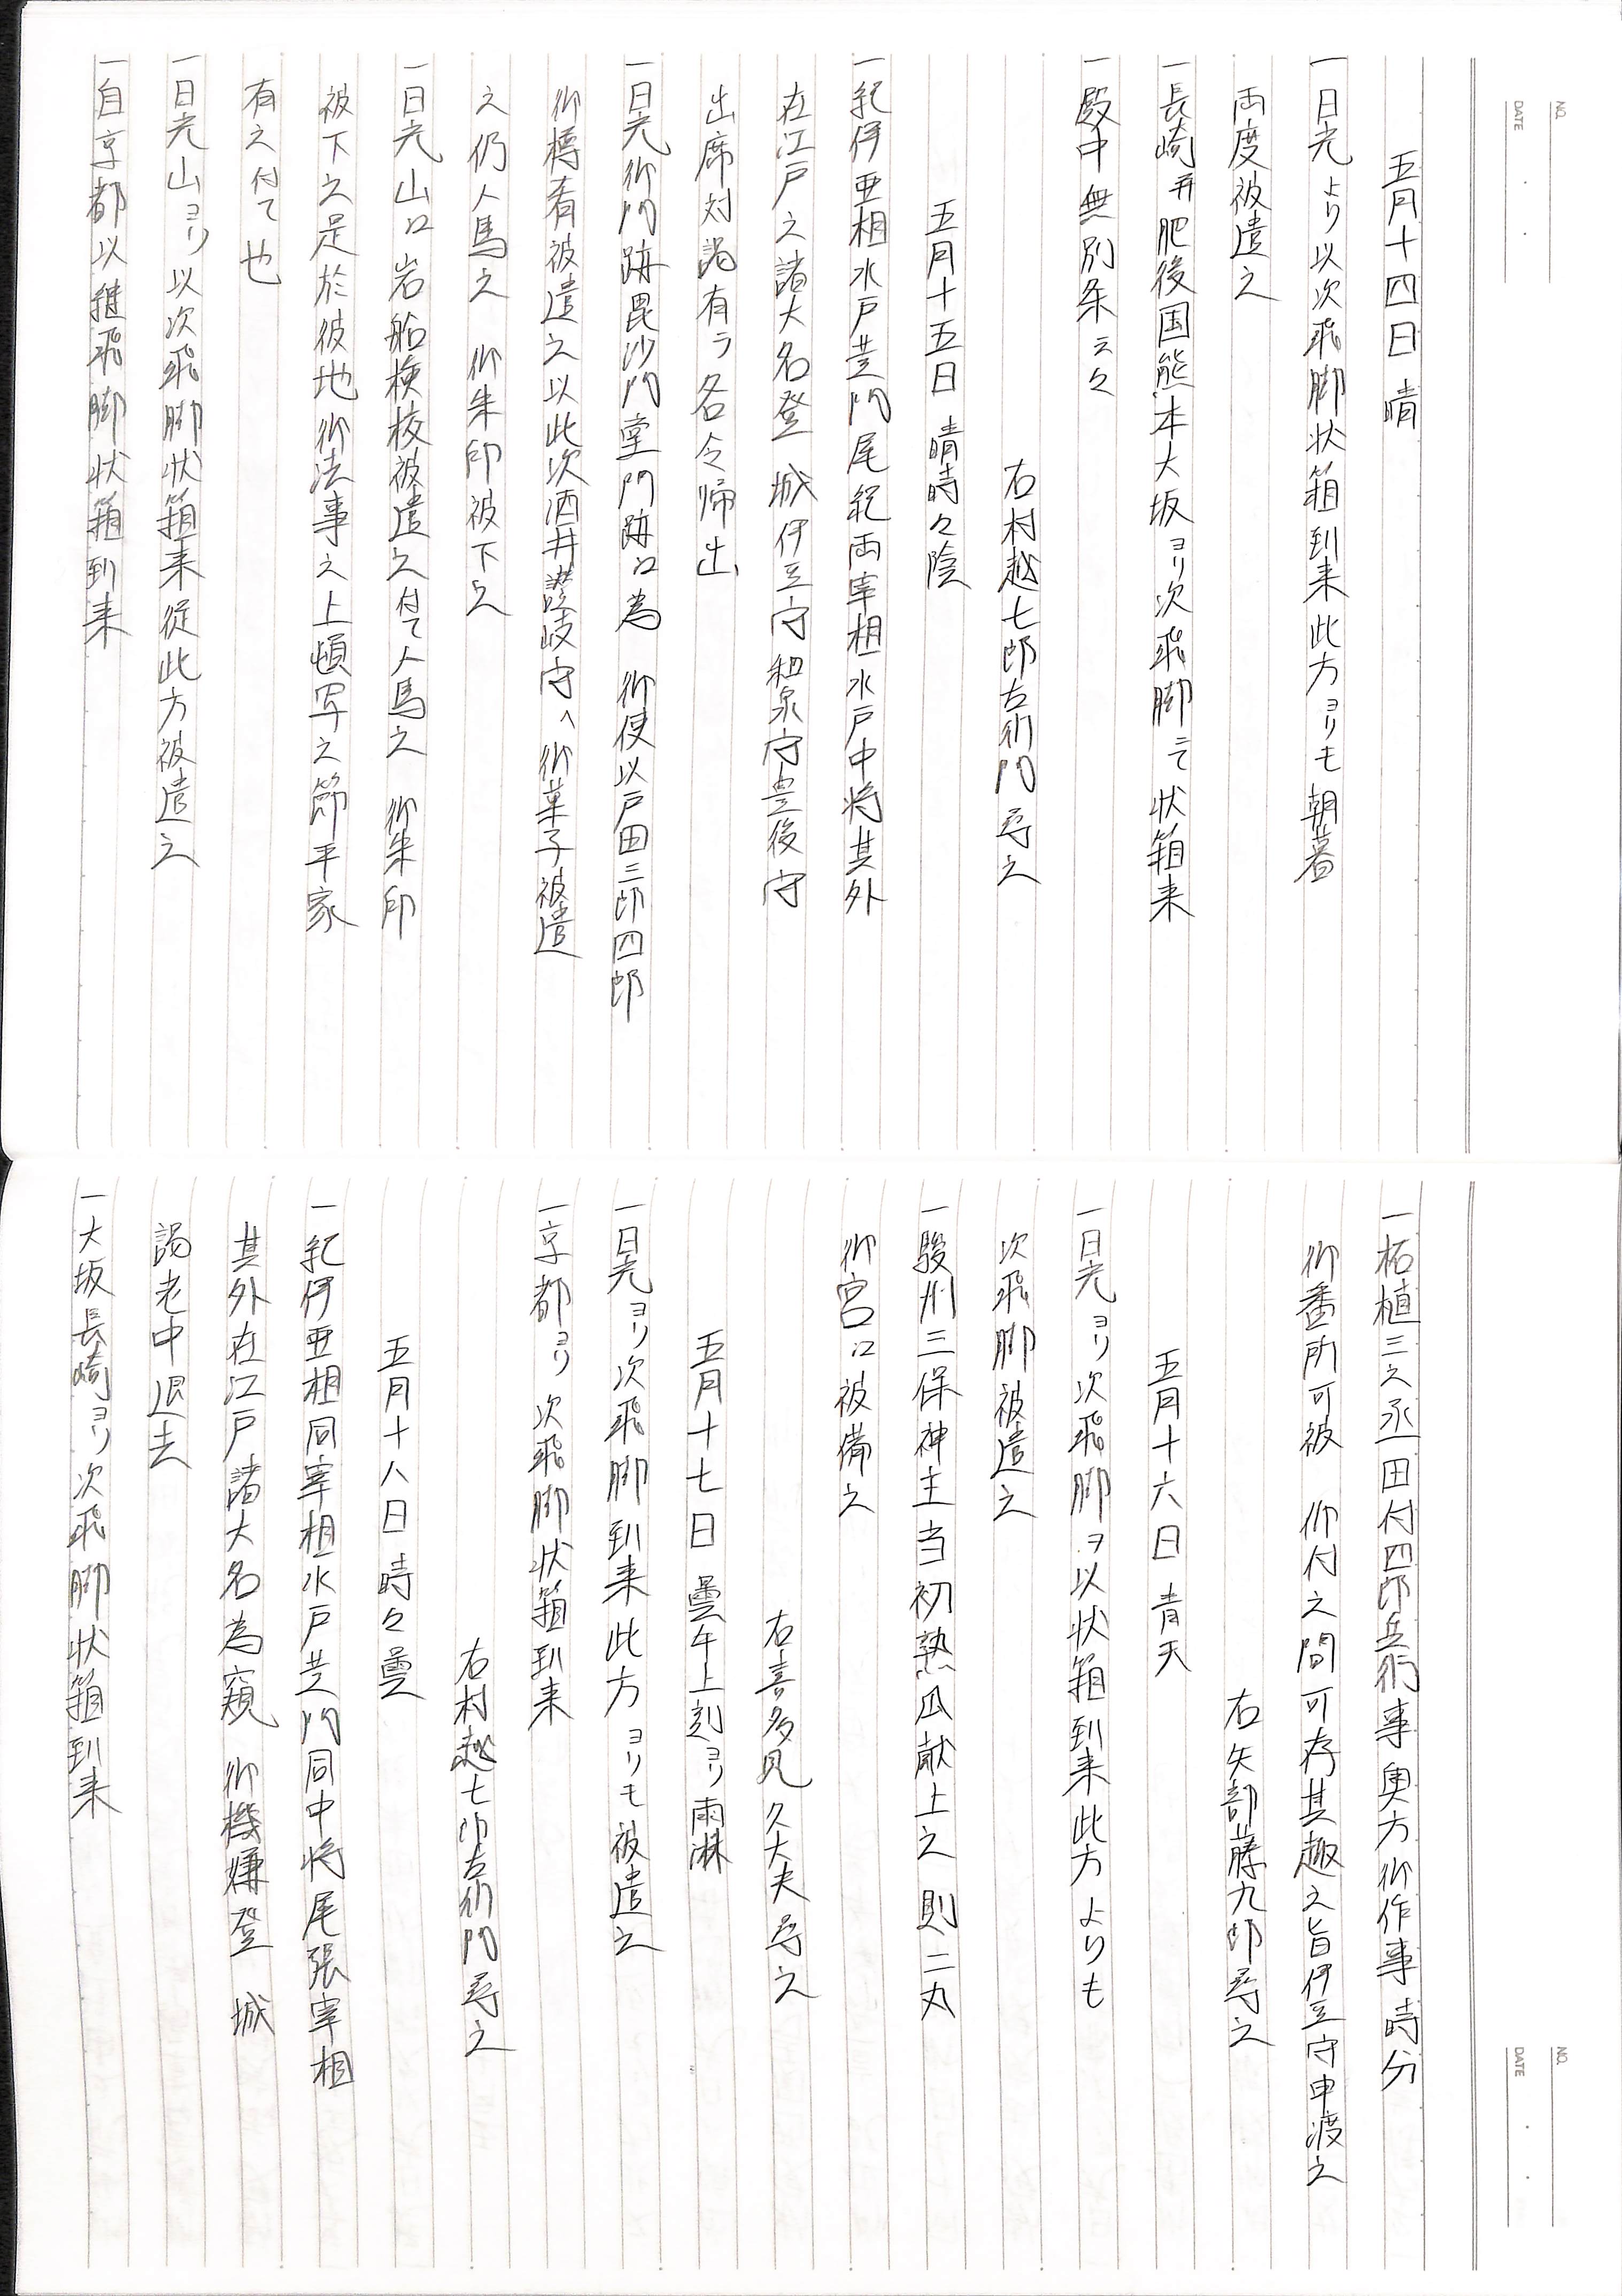 五月十四日 晴
一日光より以次飛脚状箱到来此方ヨリも朝暮
両度被遣之
一長崎并肥後国熊本大坂ヨリ次飛脚ニて状箱来
一殿中無別条云々
右村越七郎左衛門尋之
五月十五日 晴時々陰
一紀伊亜相水戸黄門尾紀両宰相水戸中将其外
在江戸之諸大名登 城伊豆守和泉守豊後守
出席対謁有ラ各令帰出
一日光御門跡毘沙門堂門跡江為 御使以戸田三郎四郎
御樽肴被遣之以此次酒井讃岐守へ御菓子被遣
之仍人馬之 御朱印被下之
一日光山江岩船検校被遣之付て人馬之 御朱印
被下之是於彼地御法事之上頓写之節平家
有之付て也
一日光山ヨリ以次飛脚状箱来従此方被遣之
一自京都以継飛脚状箱到来
一柘植三之丞田付四郎兵衛事奥方御作事時分
御番所可被 仰付之間可存其趣之旨伊豆守申渡之
右矢部藤九郎尋之
五月十六日 青天
一日光ヨリ次飛脚ヲ以状箱到来此方よりも
次飛脚被遣之
一駿州三保神主当初熟瓜献上之則二丸
御宮江被備之
右喜多見久大夫尋之
五月十七日 曇午上刻ヨリ雨淋
一日光ヨリ次飛脚到来此方ヨリも被遣之
一京都ヨリ次飛脚状箱到来
右村越七郎左衛門尋之
五月十八日 時々曇
一紀伊亜相同宰相水戸黄門同中将尾張宰相
其外在江戸諸大名為窺 御機嫌登 城
謁老中退去
一大坂長崎ヨリ次飛脚状箱到来
NO.
DATE
NO.
DATE